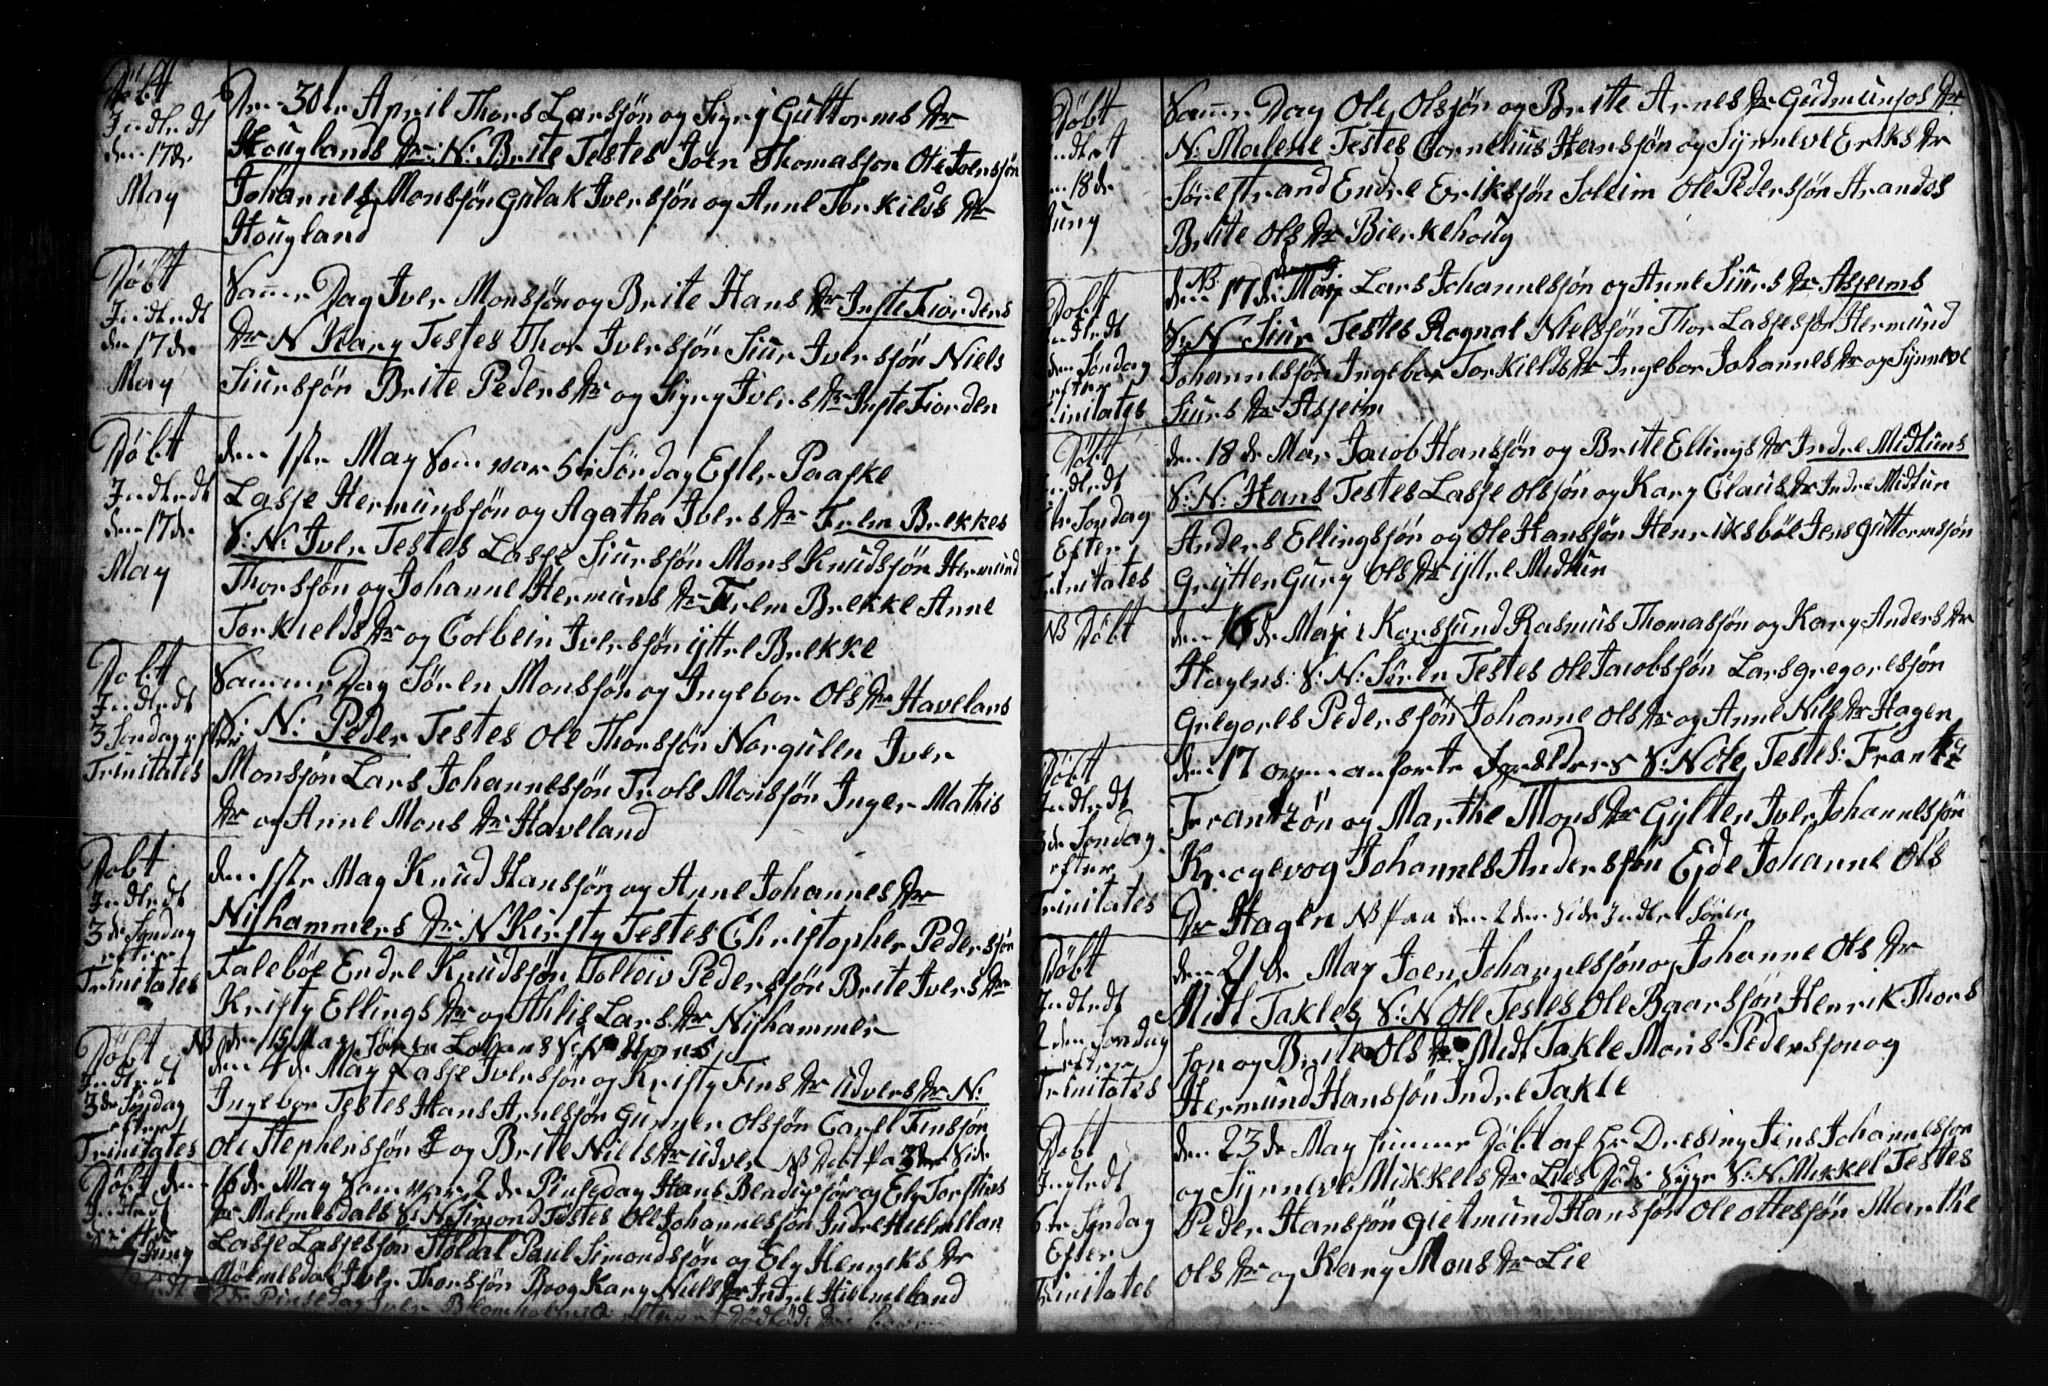 Døbt
Indledt
den 17de
May
Den 30te April Thors Larssøn og Sigry Guttorms Dr
Houglands Dr: N: Brite Testes Joen Thomasson Ole Joenssøn
Johannes Monssøn Gulak Iverssøn og Anne Torkilds Dr
Hougland
Døbt
Indledt
den 17de
May
Samme Dag Iver Monssøn og Brite Hans Dr InsteFiordens
Dr N Kary Testes Thor Iverssøn Siur Iverssøn Niels
Siurssøn Brite Peders Dr og Sigry Ivers Dr InsteFiorden
Døbt
Indledt
den 17de
May
den 1ste May Som var 5te Søndag Efter Paaske
Lasse Hermunssøn og Agatha Ivers Dr Frem Brekkes
S: N: Iver Testes Lasse Siurssøn Mons Knudssøn Hermund
Thorssøn og Johanne Hermuns Dr Frem Brekke Anne
Torkields Dr og Colbein Iverssøn yttre Brekke
Døbt
Indledt
3 Søndag efter
Trinitates
Samme Dag Søren Monssøn og Ingebor Ols Dr Havelans
S: N: Peder Testes Ole Thorssøn Norgulen Iver
Monssøn Lars Johannessøn Trols Monssøn Inger Mathis
Dr og Anne Mons Dr Haveland
Døbt
Indledt
3de Søndag
efter
Trinitates
den 1ste May Knud Hanssøn og Anne Johannes Dr
Nyhammers Dr: N Kirsty Testes Christopher Pederssøn
Falebøe Endre Knudssøn Tolleiv Pederssøn Brite Ivers Dr
Kristy Ellings Dr og Ahlis Lars Dr Nyhammer
NB den 15 May Søren S: N
Døbt
Indledt
3de Søndag
efter
Trinitates
den 4de May Lasse Iverssøn og Kristy Fins Dr Udvers Dr N:
Ingebor Testes Hans Arnessøn Gunner Olssøn Carel Finssøn
Ole Stephenssøn og Brite Niels Dr Udver NB Døbt paa 3de Side
Døbt den
Indledt
16de May Som var 2de Pinsedag Hans Bendixssøn og Ely Torstens
Dr Molmesdals S: N: Simond Testes Ole Johannessøn Indre Hielmelan
Lasse Lassessøn Støldal Paul Simondssøn og Ely Henriks Dr
Mølmesdal Iver Thorssøn Brog Kary Niels Dr Indre Hielmeland
2de Pinsedag Iver
Døbt
Indledt
18de
Juny
Samme Dag Ole Olssøn og Brite Arnes Dr Gudmunsos Dr
N: Malene Testes Cornelius Hanssøn og Synneve Eriks Dr
Sørestrand Endre Erikssøn Soleim Ole Pederssøn Strandos
Brite Ols Dr Bierkehoug
Døbt
Indledt
den Søndag
efter
Trinitates
NB
den 17de May Lars Johannessøn og Anne Siurs Dr Asheims
S: N Siur Testes Rognal Nielssøn Thor Lassessøn Hermund
Johannessøn Ingebor Torkields Dr Ingebor Johannes Dr og Synneve
Siurs Dr Asheim
Døbt
Indledt
Søndag
Efter
Trinitates
den 18de May Jacob Hanssøn og Brite Ellings Dr Indre Midtuns
S: N: Hans Testes Lasse Olssøn og Kary Claus Dr Indre Midtun
Anders Ellingssøn og Ole Hanssøn Henriksbøe Jens Guttormssøn
Grytten Gury Ols Dr yttre Midtun
NB Døbt
den 16de May i Korssund Rasmus Thomassøn og Kary Anders Dr
Hagens: S: N: Søren Testes Ole Jacobssøn Lars Gregoressøn
Gregores Pederssøn Johanne Ols Dr og Anne Nils Dr Hagen
Døbt
Indledt
3de Søndag
efter
Trinitates
den 17 oven anførte Forelders S: N Ole Testes: Frantz
Frantzøn og Marthe Mons Dr Gylten Iver Johannessøn
Krogevog Johannes Anderssøn Eide Johanne Ols
Dr Hagen NB paa den 2den Side Indlet Søren
Døbt
Indledt
2den Søndag
efter
Trinitates
den 21de May Joen Johannessøn og Johanne Ols Dr
Midt Takles S: N Ole Testes Ole Baarssøn Henrik Thors
søn og Brite Ols Dr Midt Takle Mons Pederssøn og
Hermund Hanssøn Indre Takle
Døbt
Indledt
6te Søndag
Efter
Trinitates
den 23de May hiemme Døbt af Hr Dresing Jens Johannessøn
og Synneve Mikkels Dr Lies Døde Syge S: N: Mikkel Testes
Peder Hanssøn Gietmund Hanssøn Ole Ottessøn Marthe
Ols Dr og Kary Mons Dr Lie